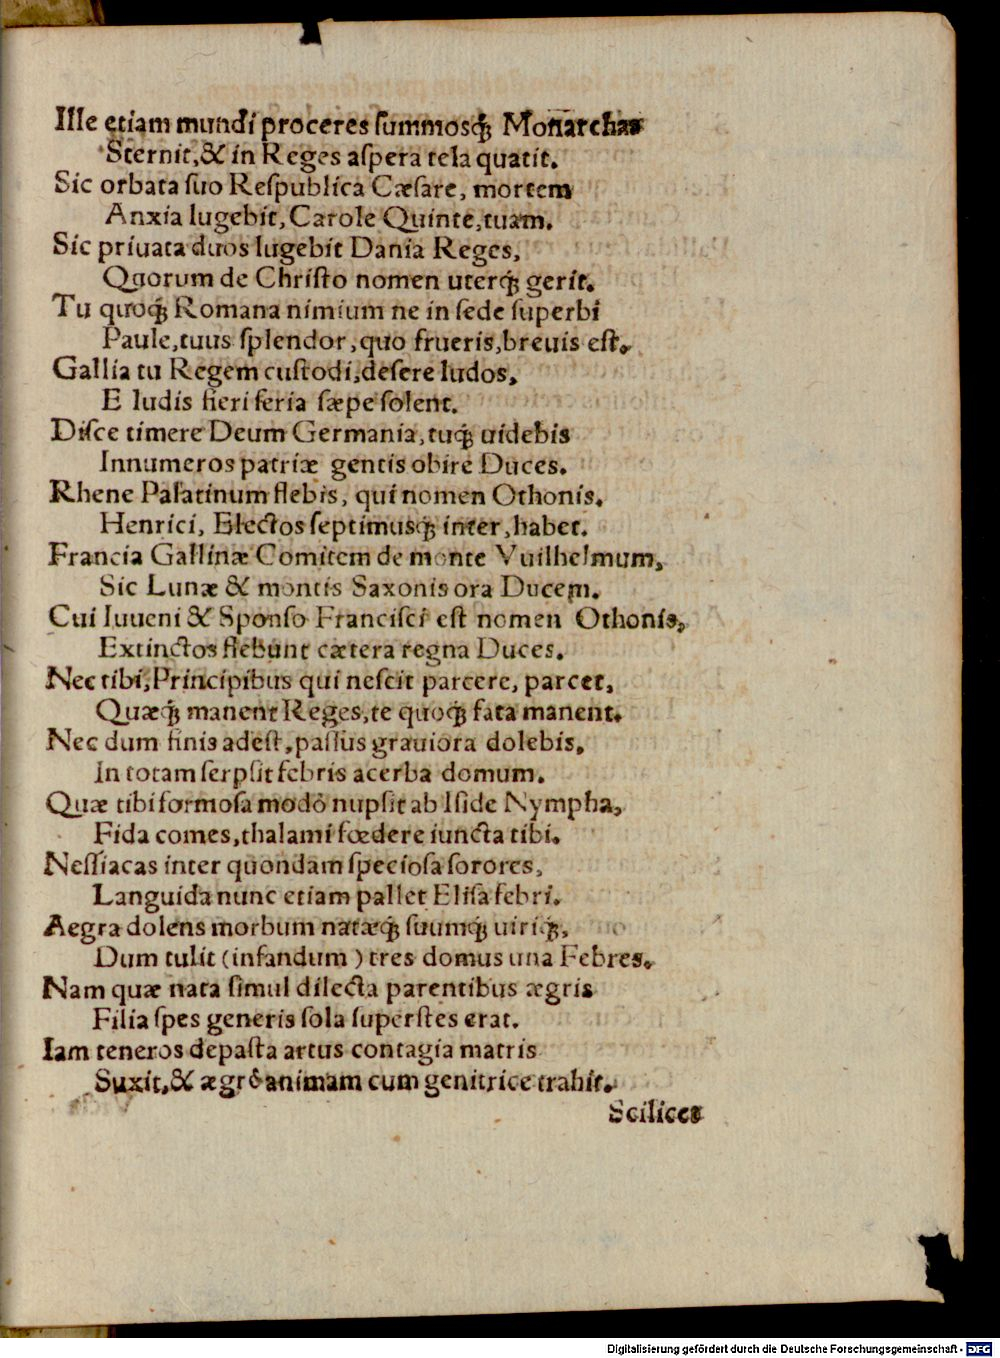 Ille etiam mundi proceres summosq́; Monarchas
Sternit,& in Reges aspera tela quatit.
Sic orbata suo Respublica Cæsare, mortem
Anxia lugebit, Carole Quinte,tuam.
Sic priuata duos lugebit Dania Reges,
Quorum de Christo nomen uterq́; gerit.
Tu quoq́; Romana nimium ne in sede superbi
Paule,tuus splendor,quo frueris,breuis est.
Gallia tu Regem custodi,desere ludos,
E ludis fieri seria sæpe solent.
Disce timere Deum Germania,tuq́; uidebis
Innumeros patriæ gentis obire Duces.
Rhene Palatinum flebis, qui nomen Othonis.
Henrici, Electos septimusq́; inter,habet.
Francia Gallinæ Comitem de monte Vuilhelmum,
Sic Lunæ & montis Saxonis ora Ducem.
Cui Iuueni & Sponso Francisci est nomen Othonis,
Extinctos flebunt cætera regna Duces.
Nec tibi,Principibus qui nescit parcere, parcet,
Quæq́; manent Reges,te quoq́; fata manent.
Nec dum finis adest,passus grauiora dolebis,
In totam serpsit febris acerba domum.
Quæ tibi formosa modò nupsit ab Iside Nympha,
Fida comes,thalami fœdere iuncta tibi.
Nessiacas inter quondam speciosa sorores,
Languida nunc etiam pallet Elisa febri.
Aegra dolens morbum natæq́; suumq́; uiriq́;,
Dum tulit (infandum) tres domus una Febres.
Nam quæ nata simul dilecta parentibus ægris
Filia spes generis sola superstes erat.
Iam teneros depasta artus contagia matris
Suxit,& ægrè animam cum genitrice trahit.
Scilicet
Digitalisierung gefördert durch die Deutsche Forschungsgemeinschaft - DFG